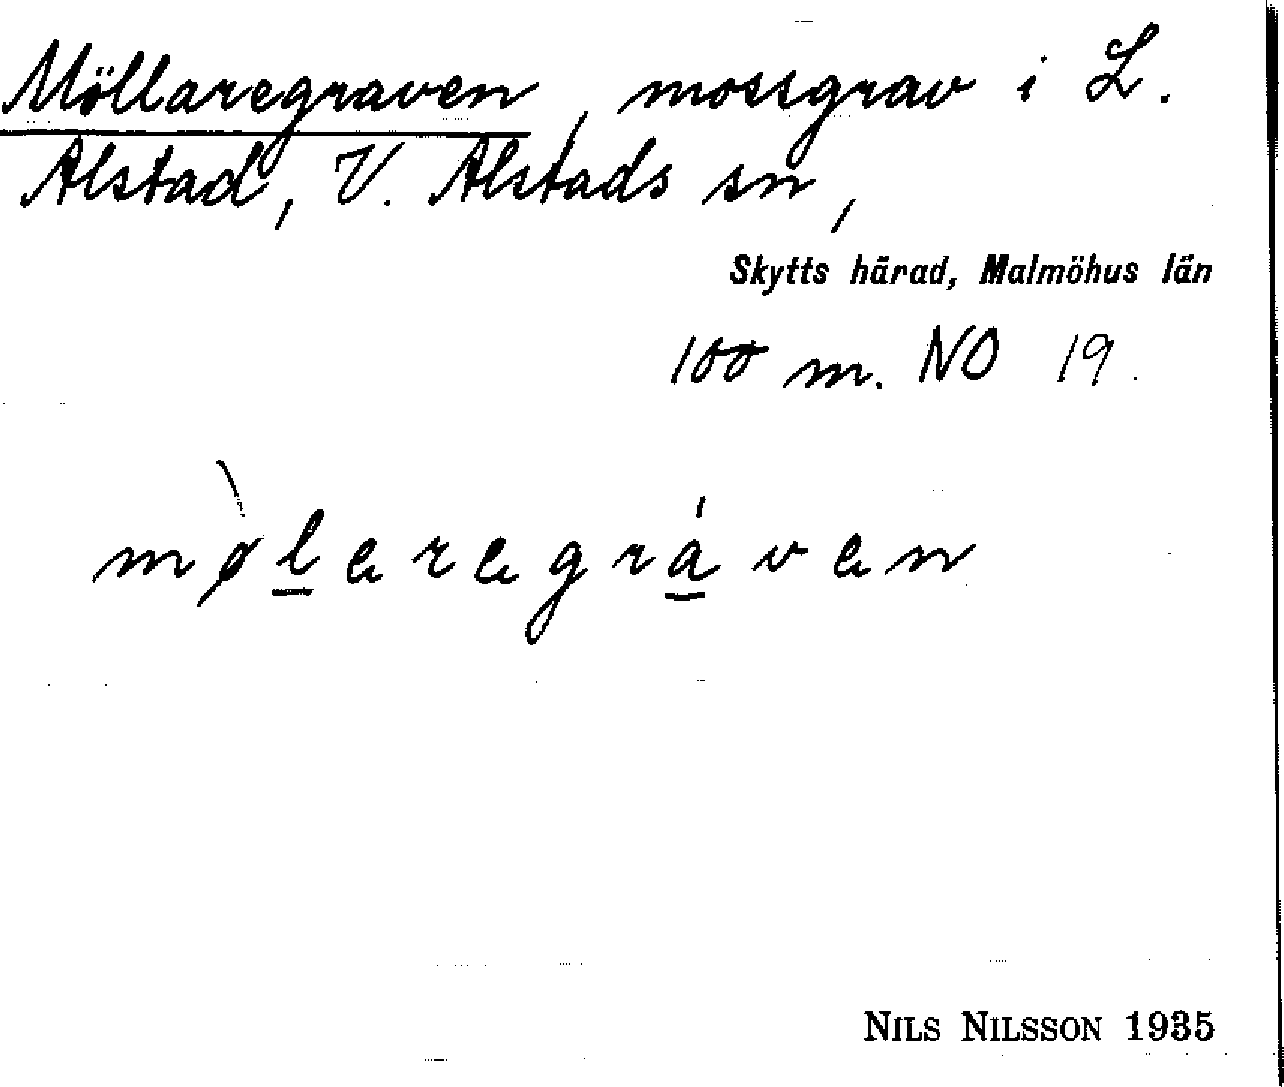 Möllaregraven, mossgrav i L.
Alstad, V. Alstads sn,
Skytts härad, Malmöhus län
100 m. NO 19.
mø̀laregrávan
NILS NILSSON 1935